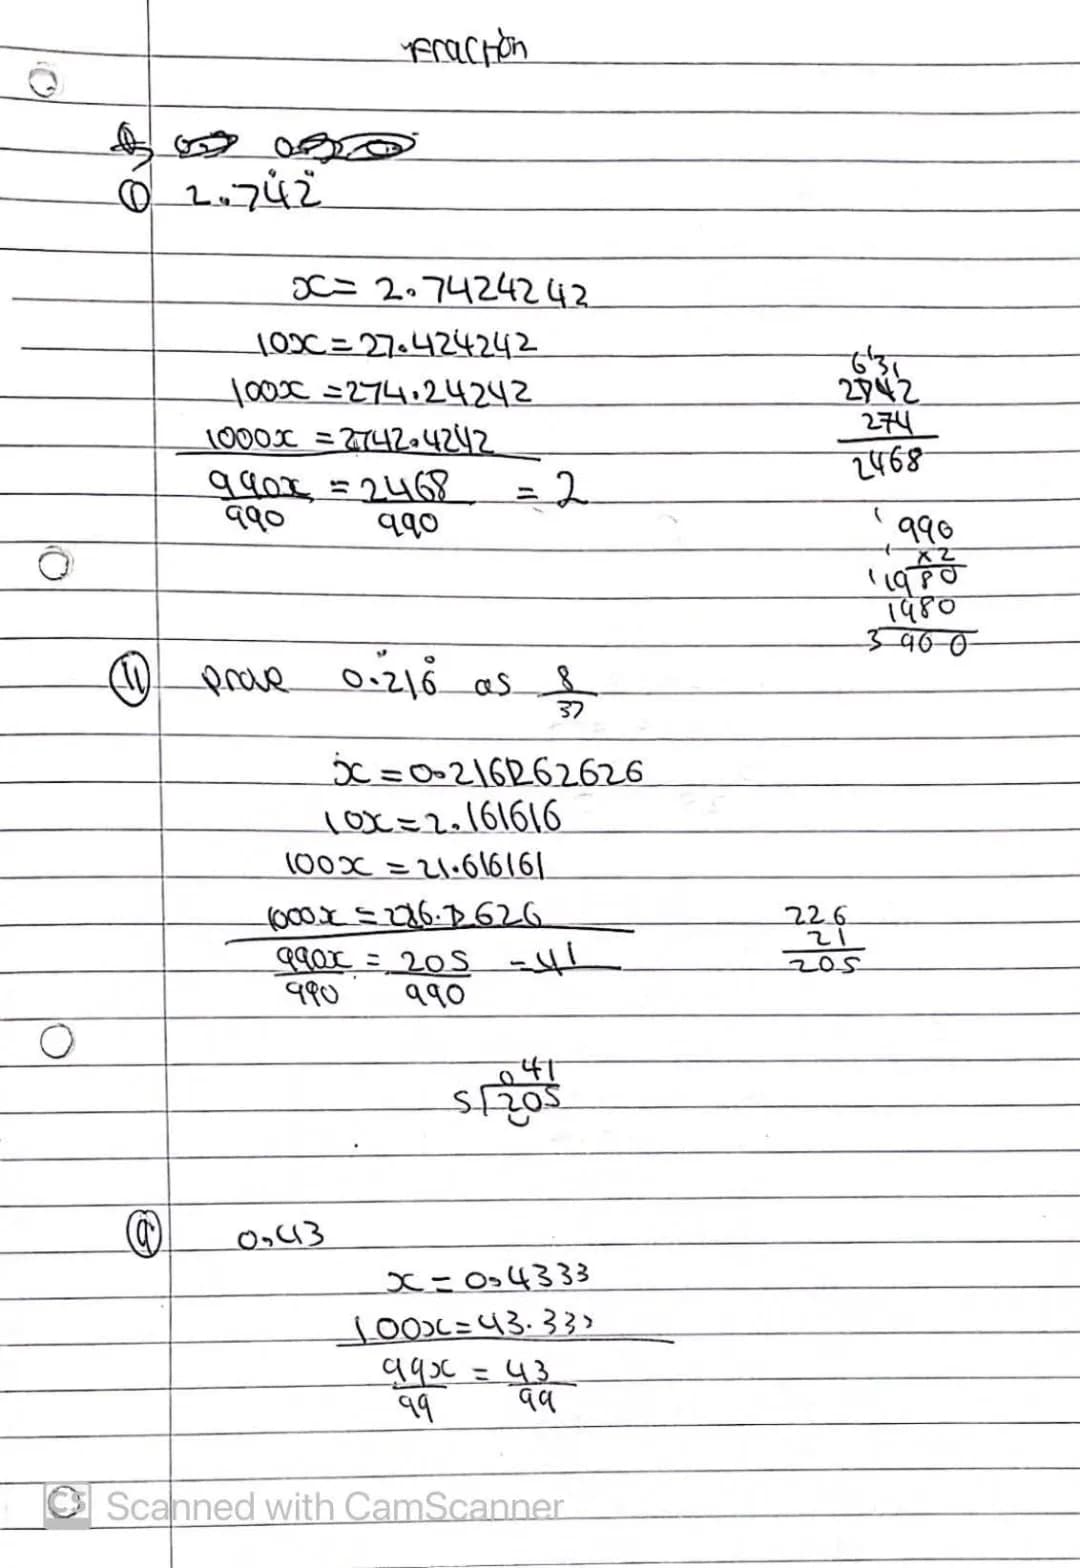 Fraction
① 2.742
x = 2.7424242
10x = 27.424242
100x = 274.24242
1000x = 2742.4242
990x = 2468 = 2
990 990
631
2742
274
2468
990
x2
1980
1980
3960
⑪ prove 0.216 as 8
37
x = 0.216262626
10x = 2.161616
100x = 21.616161
1000x = 226.2626
990x = 205 = 41
990 990
226
21
205
041
5√205
0.43
x = 0.4333
100x = 43.333
99x = 43
99 99
CS Scanned with CamScanner